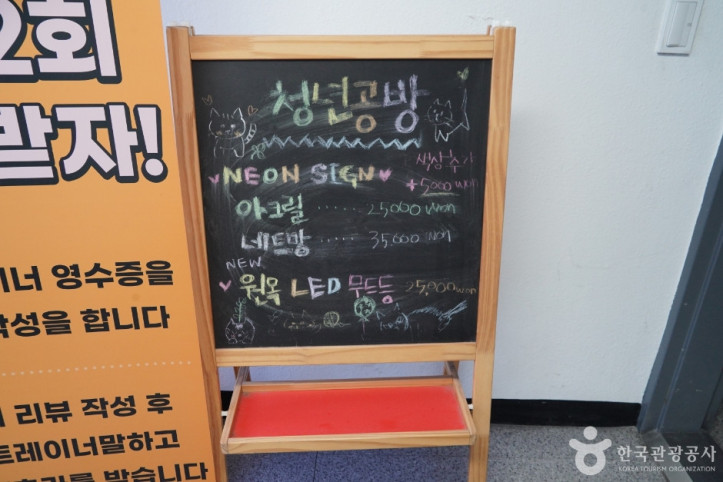 2회
받자!
너 영수증을
작성을 합니다
리뷰 작성 후
트레이너말하고
를 받습니다
청년공방
NEON SIGN
색상추가
+5,000 won
아크릴 ...... 25,000 won
네트망 ...... 35,000 won
NEW
원목 LED 무드등 25,000 won
한국관광공사
KOREA TOURISM ORGANIZATION